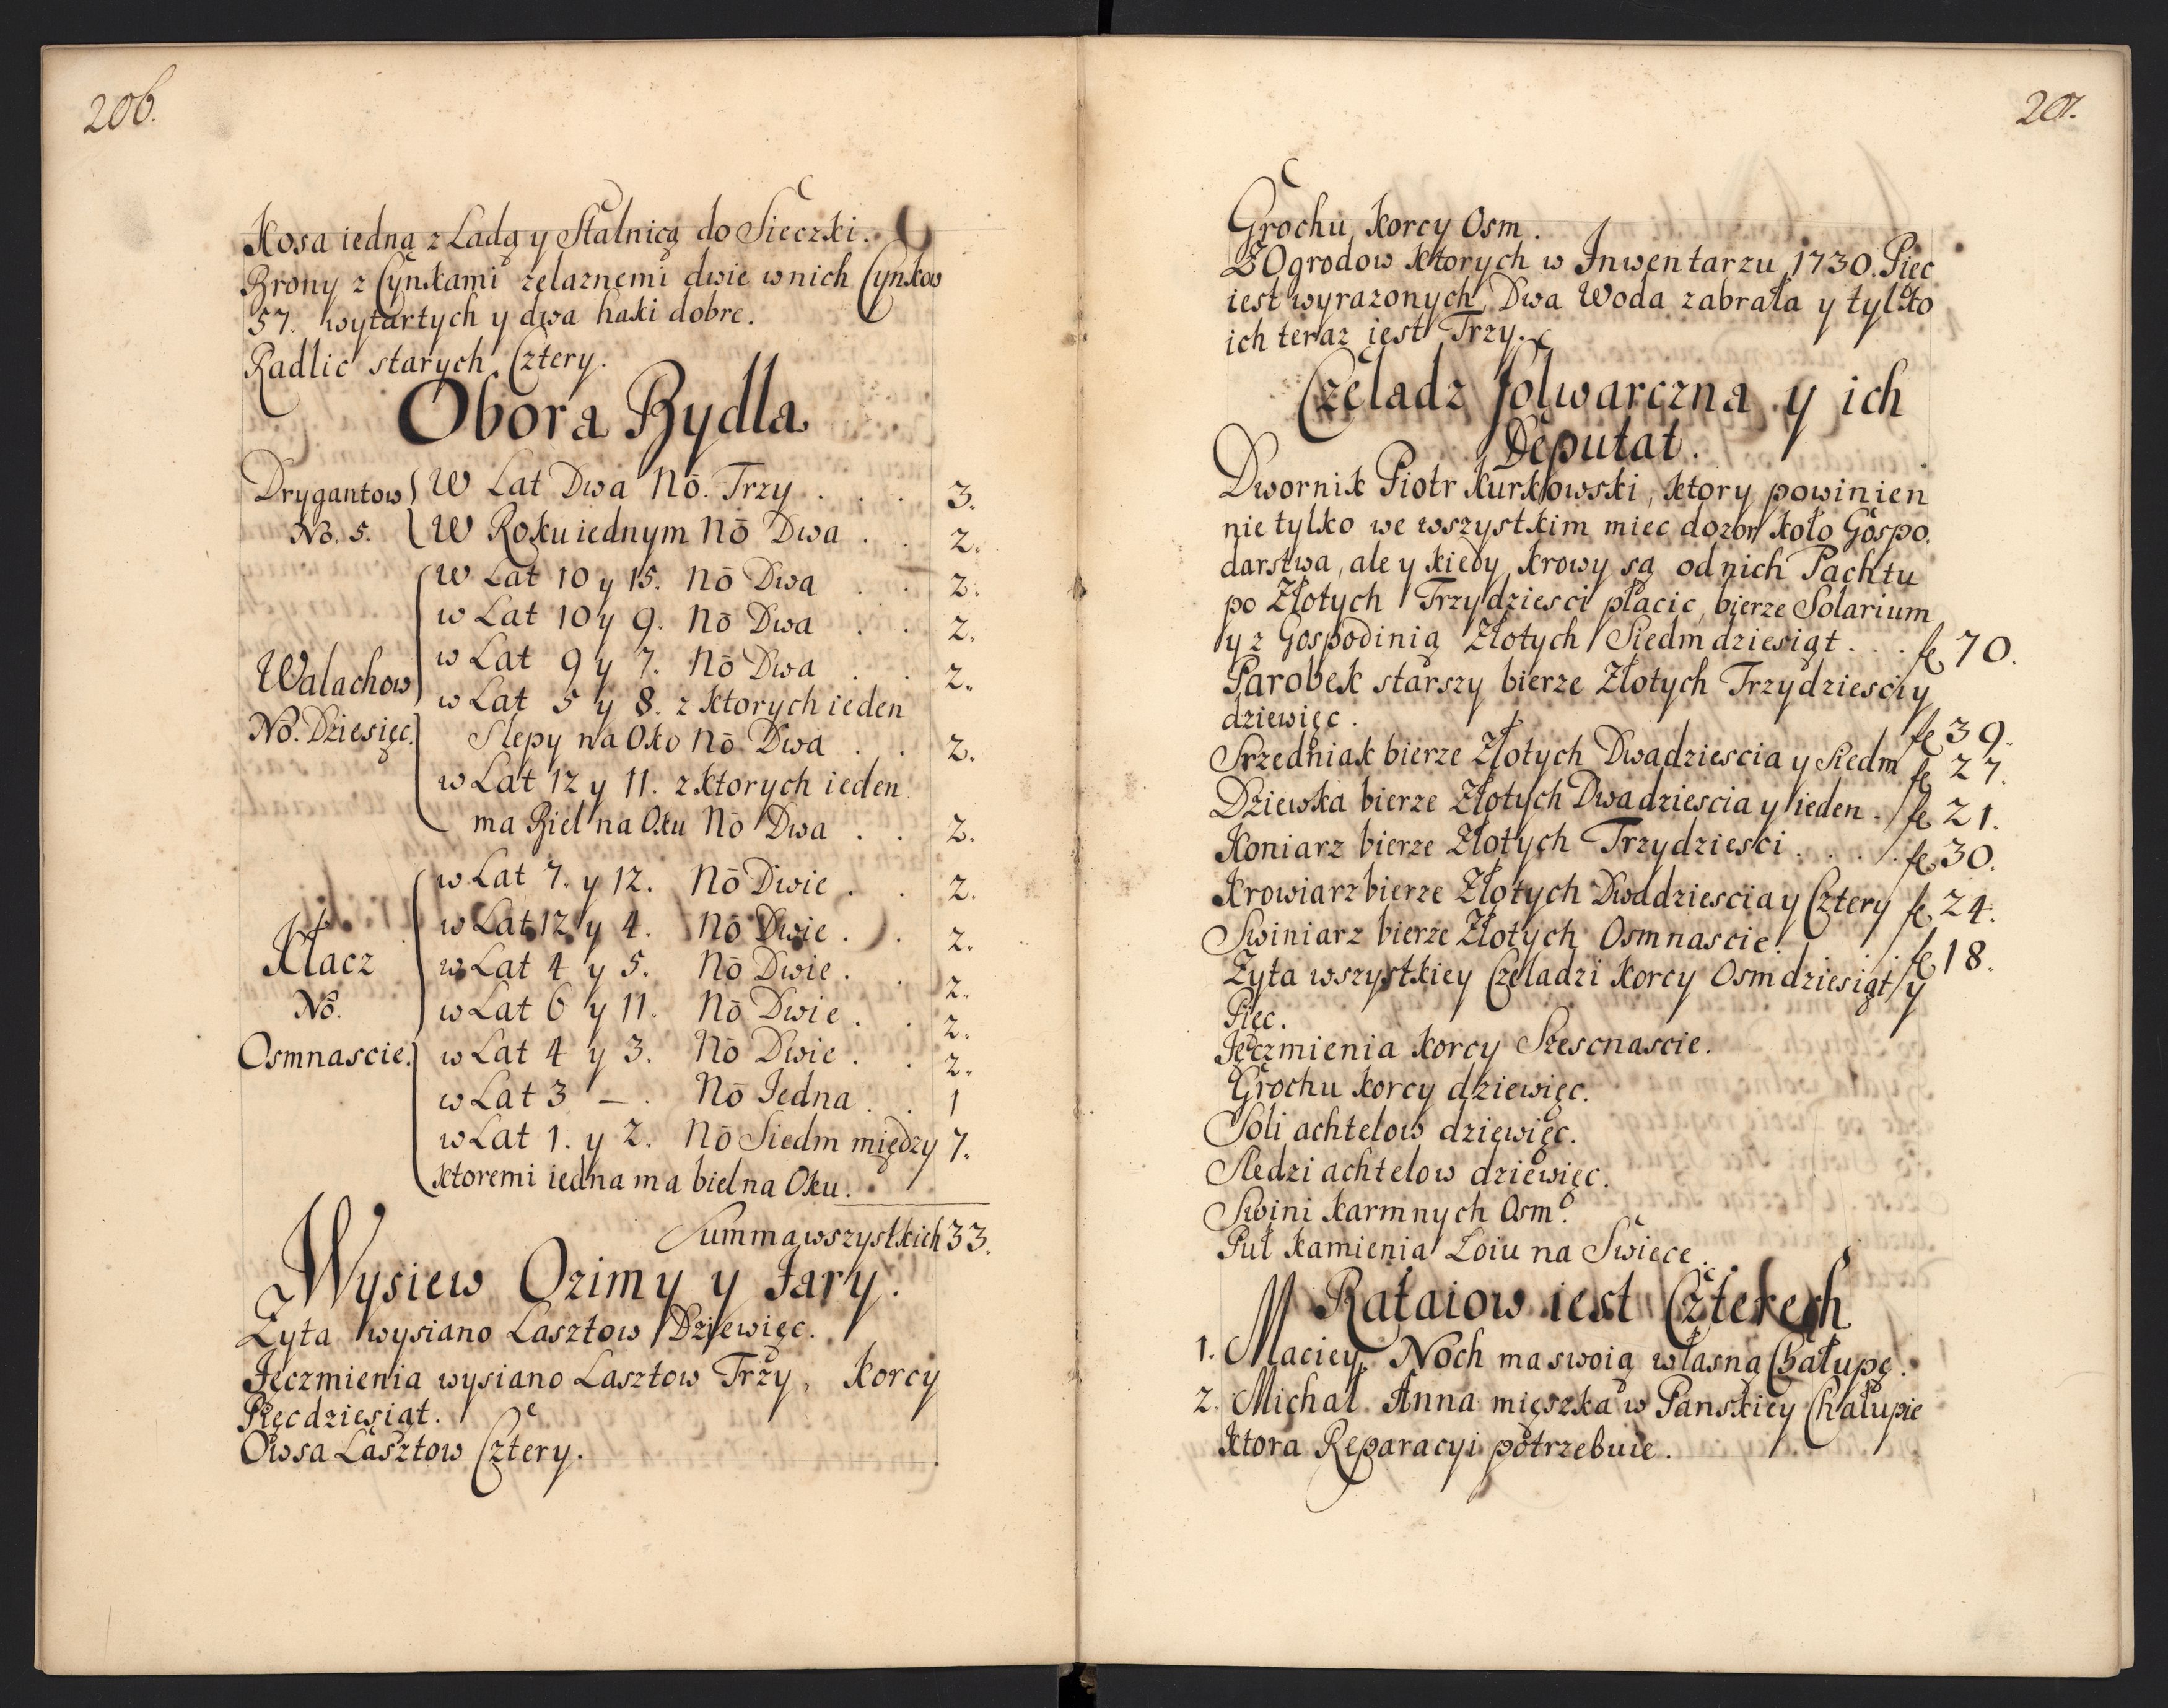 206.
Kosa iedna z Ladą y Stalnicą do Sieczki.
Brony z Cynkami żelaznemi dwie w nich Cynkow
57. wytartych y dwa haki dobre.
Radlic starych Cztery.
Obora Bydla
Drygantow W Lat Dwa Nō. Trzy . . . 3.
No. 5. W Roku iednym Nō Dwa . . 2.
W Lat 10 y 15. Nō Dwa . . 2.
w Lat 10 y 9. Nō Dwa . . 2.
w Lat 9 y 7. Nō Dwa . . 2.
Walachow w Lat 5 y 8. z ktorych ieden
No. Dziesięc. Slepy na Oko Nō Dwa . . 2.
w Lat 12 y 11. z ktorych ieden
ma Biel na Oku Nō Dwa . . 2.
w Lat 7. y 12. Nō Dwie . . 2.
w Lat 12 y 4. Nō Dwie . . 2.
Klacz w Lat 4 y 5. Nō Dwie . . 2.
No. w Lat 6 y 11. Nō Dwie . . 2.
Osmnascie. w Lat 4 y 3. Nō Dwie . . 2.
w Lat 3 – . Nō Jedna . . 1
w Lat 1. y 2. Nō Siedm między 7.
ktoremi iedna ma biel na Oku.
Summa wszystkich 33.
Wysiew Ozimy y Jary.
Żyta wysiano Lasztow Dziewięc.
Jęczmienia wysiano Lasztow Trzy, Korcy
Pięcdziesiąt.
Owsa Lasztow Cztery.
207.
Grochu Korcy Osm.
Z Ogrodow ktorych w Inwentarzu 1730. Pięc
iest wyrazonych, Dwa Woda zabrała y tylko
ich teraz iest Trzy.
Czeladz folwarczna y ich
Deputat.
Dwornik Piotr Kurkowski, ktory powinien
nie tylko we wszystkim miec dozor koło Gospo.
darstwa, ale y kiedy krowy są od nich Pachtu
po Złotych Trzydziesci płacic, bierze Solarium
y z Gospodinią Złotych Siedmdziesiąt . . . fl 70.
Parobek starszy bierze Złotych Trzydziesci y
dziewięc. fl 39.
Srzedniak bierze Złotych Dwadziescia y Siedm fl 27.
Dziewka bierze Złotych Dwadziescia y ieden . fl 21.
Koniarz bierze Złotych Trzydziesci . . . . fl 30.
Krowiarz bierze Złotych Dwadziescia y Cztery fl 24.
Swiniarz bierze Złotych Osmnascie . . . fl 18.
Żyta wszystkiey Czeladzi Korcy Osmdziesiąt y
Pięc.
Jęczmienia Korcy Szescnascie.
Grochu Korcy dziewięc.
Soli achtelow dziewięc.
Sledzi achtelow dziewięc.
Swini karmnych Osm.
Puł kamienia Łoiu na Swiece.
Rataiow iest Czterech
1. Maciey Noch ma swoią własną Chałupę.
2. Michal Anna mięszka w Panskiey Chałupie
ktora Reparacyi potrzebuie.